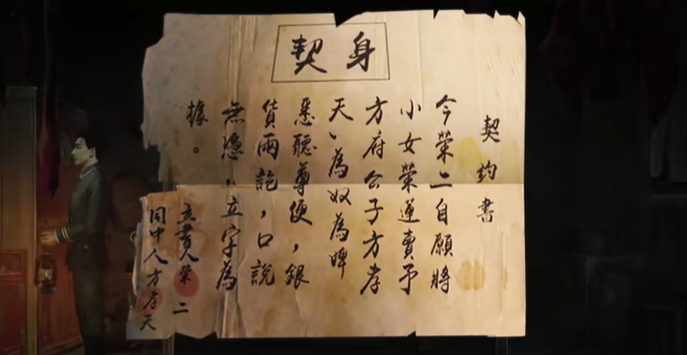 身契
契約書
今榮二自願將
小女榮蓮賣予
方府公子方孝
天、為奴為婢
悉聽尊便,銀
貨兩訖,口說
無憑,立字為
據。
立書人榮二
同中人方孝天